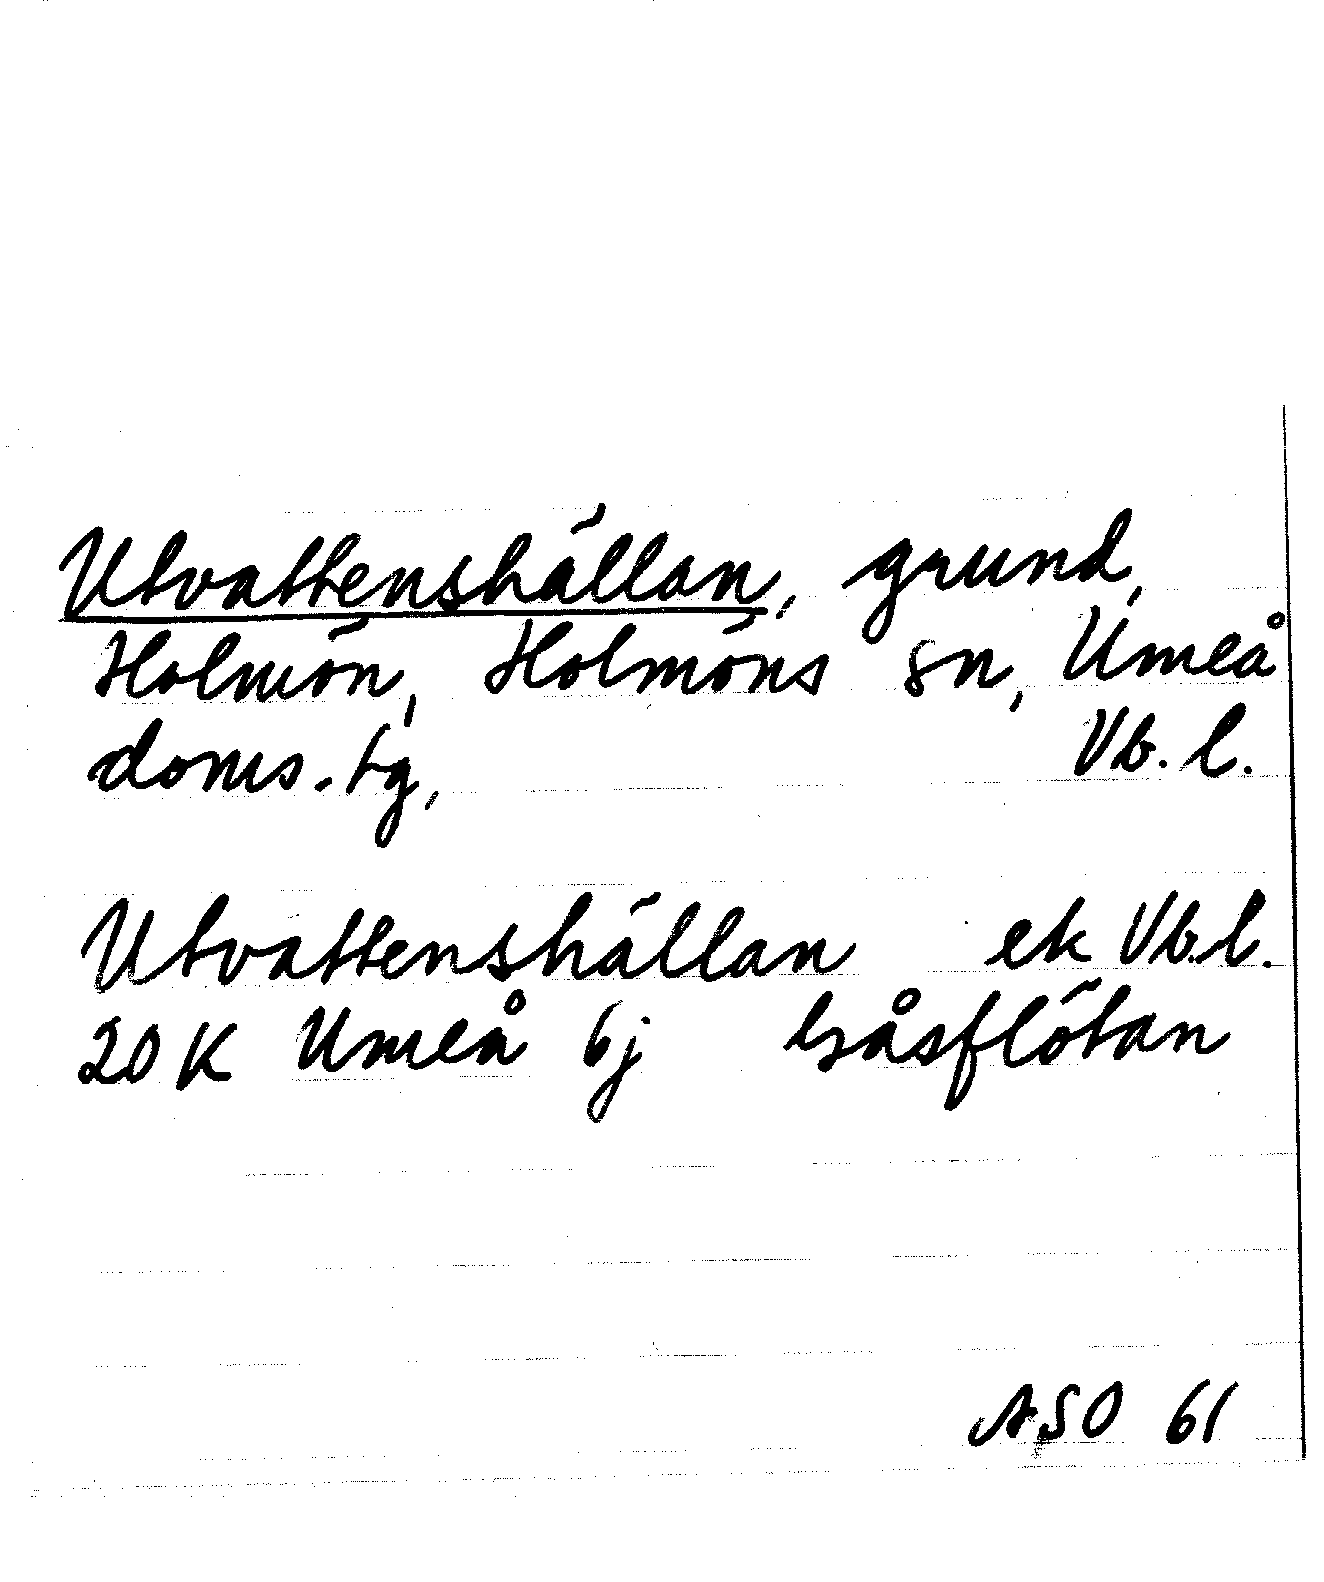 Utvattenshällan, grund,
Holmön, Holmöns sn, Umeå
doms.tg, Vb. l.
Utvattenshällan ek Vb.l.
20 K Umeå 6j Gåsflötan
ASO 61